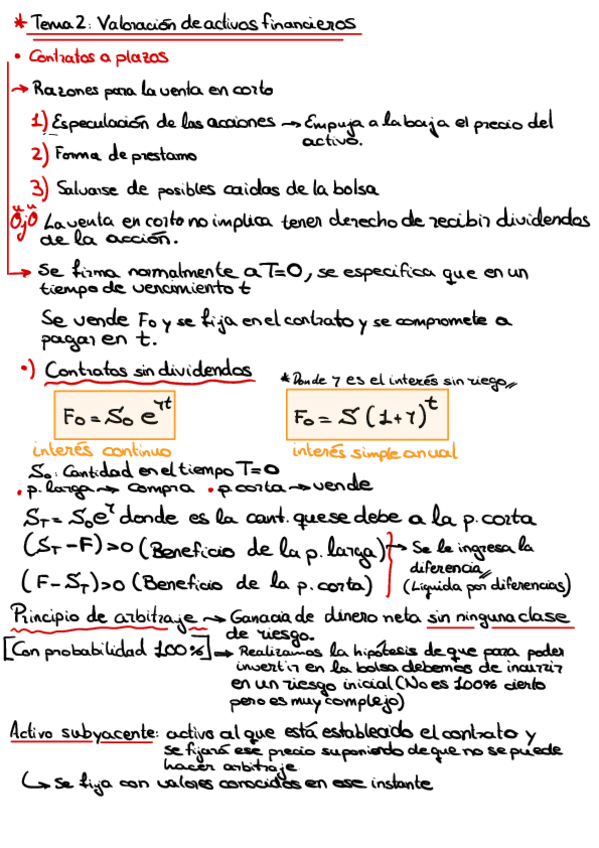 * Tema 2: Valoración de activos financieros
• Contratos a plazos
→ Razones para la venta en corto
1) Especulación de las acciones → Empuja a la baja el precio del
activo.
2) Forma de prestamo
3) Salvarse de posibles caidas de la bolsa
Ojo La venta en corto no implica tener derecho de recibir dividendos
de la acción.
→ Se firma normalmente a T=0, se especifica que en un
tiempo de vencimiento t
Se vende F₀ y se fija en el contrato y se compromete a
pagar en t.
•) Contratos sin dividendos
* Donde r es el interés sin riego
F₀ = S₀ e^{rt}
F₀ = S (1+r)^t
interés continuo
interés simple anual
S₀: Cantidad en el tiempo T=0
• p. larga → compra • p. corta → vende
S_T = S₀e^r donde es la cant. que se debe a la p. corta
(S_T - F) > 0 (Beneficio de la p. larga) → Se le ingresa la
diferencia
(F - S_T) > 0 (Beneficio de la p. corta) (Liquida por diferencias)
Principio de arbitraje → Ganacia de dinero neta sin ninguna clase
de riesgo.
[Con probabilidad 100%] → Realizamos la hipótesis de que para poder
invertir en la bolsa debemos de incurrir
en un riesgo inicial (No es 100% cierto
pero es muy complejo)
Activo subyacente: activo al que está establecido el contrato y
se fijará ese precio suponiendo de que no se puede
hacer arbitraje
↳ Se fija con valores conocidos en ese instante